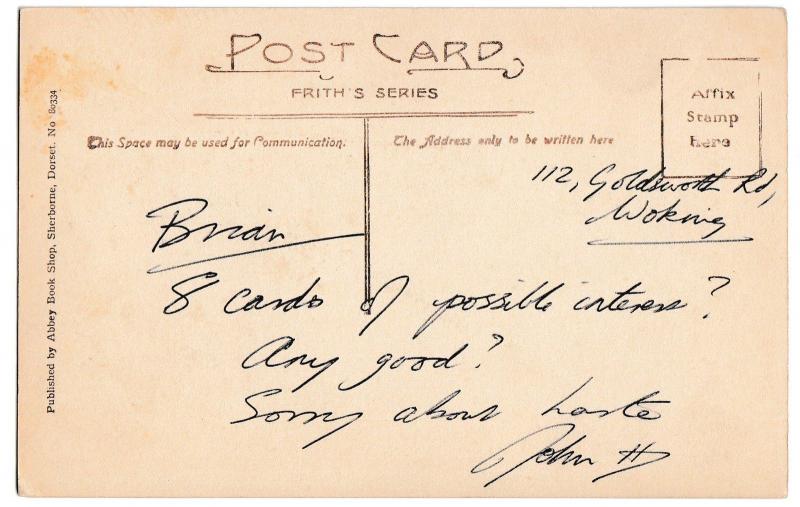 POST CARD
FRITH'S SERIES
This Space may be used for Communication.
The Address only to be written here
Affix
Stamp
Here
Published by Abbey Book Shop, Sherborne, Dorset. No 80334
112, Goldsworth Rd,
Woking
Brian
8 cards of possible interest?
Any good?
Sorry about haste
John H